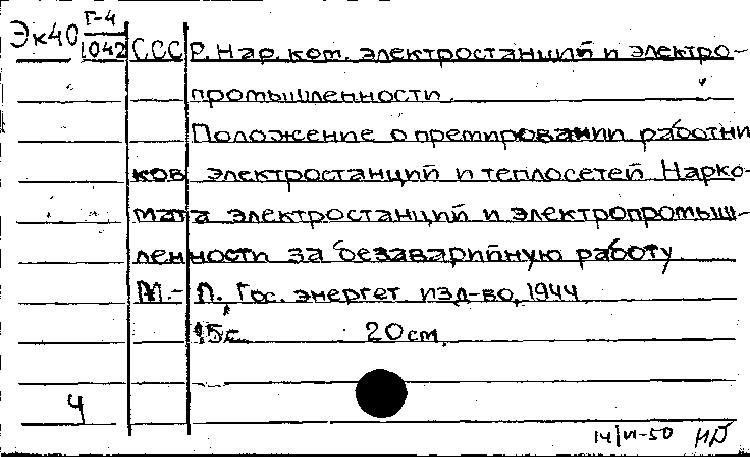 Эк40 Г-4
1042
СССР. Нар. ком. электростанций и электро-
промышленности.
Положение о премировании работни
ков электростанций и теплосетей Нарко-
мата электростанций и электропромыш-
ленности за безаварийную работу
М.-Л. Гос. энергет. изд-во, 1944
15с. 20 см.
4
14/VI-50